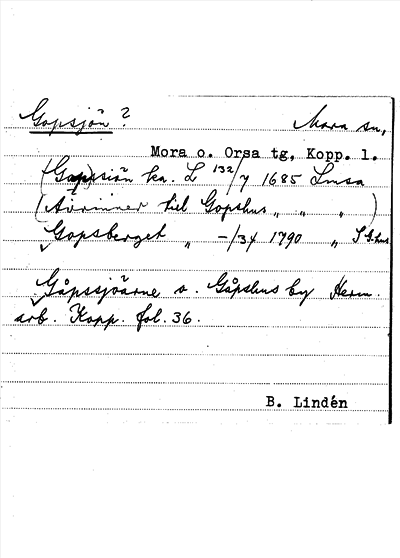 Gopsjön?
Mora sn,
Mora o. Orsa tg, Kopp. l.
sjön ka. L 132/7 1685 Lmsa
(Avrinner till Gopshus „ „ „ )
Gopsberget „ -/34 1790 „
Gåpssjöarne o. Gåpshus by Herm.
arb. Kopp. fol. 36.
B. Lindén